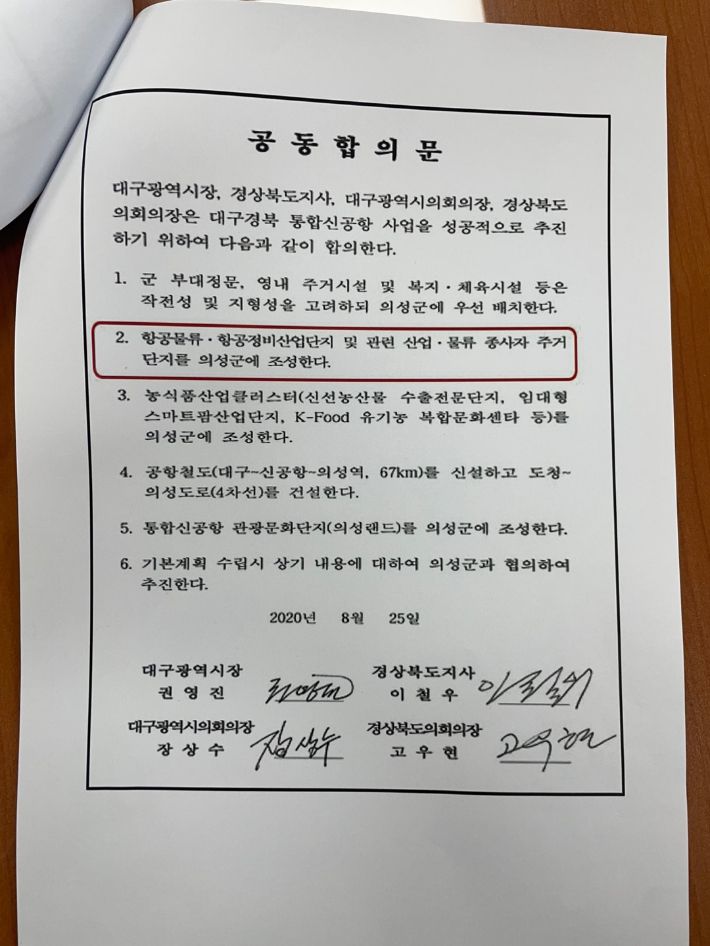 공동합의문
대구광역시장, 경상북도지사, 대구광역시의회의장, 경상북도
의회의장은 대구경북 통합신공항 사업을 성공적으로 추진
하기 위하여 다음과 같이 합의한다.
1. 군 부대정문, 영내 주거시설 및 복지·체육시설 등은
작전성 및 지형성을 고려하되 의성군에 우선 배치한다.
2. 항공물류·항공정비산업단지 및 관련 산업·물류 종사자 주거
단지를 의성군에 조성한다.
3. 농식품산업클러스터(신선농산물 수출전문단지, 임대형
스마트팜산업단지, K-Food 유기농 복합문화센타 등)를
의성군에 조성한다.
4. 공항철도(대구~신공항~의성역, 67km)를 신설하고 도청~
의성도로(4차선)를 건설한다.
5. 통합신공항 관광문화단지(의성랜드)를 의성군에 조성한다.
6. 기본계획 수립시 상기 내용에 대하여 의성군과 협의하여
추진한다.
2020년 8월 25일
대구광역시장 경상북도지사
권영진 권영진 이철우 이철우
대구광역시의회의장 경상북도의회의장
장상수 장상수 고우현 고우현